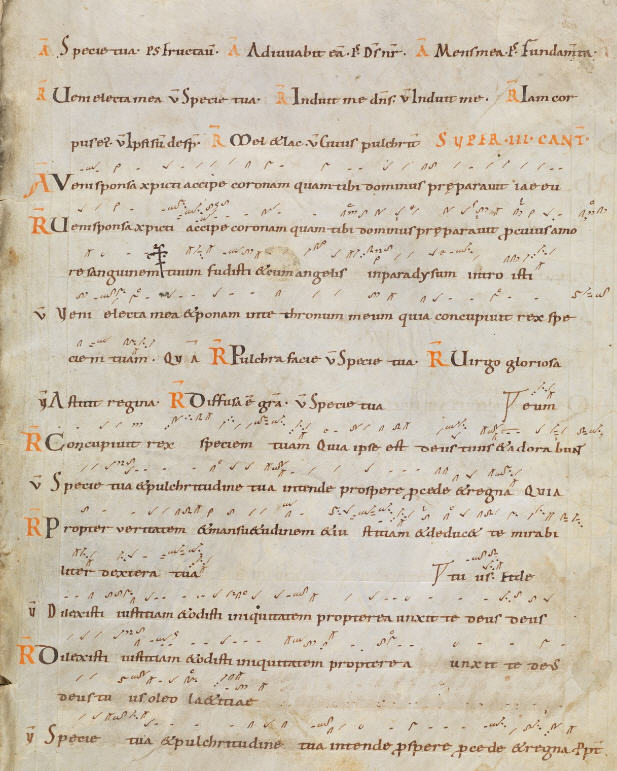 A Specie tua. ps Fructaū. A Adiuuabit eā. P. Ds nr. A Mens mea. P. Fundam̄ta.
R Ueni electa mea v̄ Specie tua. R Induit me dn̄s. v̄ Induit me. R Iam cor
pus ei. v̄ Ipsi sū desp. R Mel & lac. v̄ Cuius pulchrit SUPER III CANT.
A Veni sponsa xpicti accipe coronam quam tibi dominus pręparauit iae eu
R Ueni sponsa xpicti accipe coronam quam tibi dominus pręparauit p cuius amo
re sanguinem tuum fudisti & cum angelis in paradysum intro isti
v̄ Veni electa mea & ponam in te thronum meum quia concupiuit rex spe
ciem tuam. QuA R Pulchra facie v̄ Specie tua. R Uirgo gloriosa
v̄ Astitit regina. R Diffusa ē gr̄a. v̄ Specie tua T eum
R Concupiuit rex speciem tuam Quia ipse est deus tuus & adorabunt
v̄ Specie tua & pulchritudine tua intende prospere pcede & regna QUIA
R Propter veritatem & mansu&udinem & iustitiam & deduc& te mirabi
liter dextera tua T tu us. Et de
v̄ Dilexisti iustitiam & odisti iniquitatem propterea unxit te deus deus
R Dilexisti iustitiam & odisti iniquitatem propterea unxit te deus
deus tuus oleo la&itiae
v̄ Specie tua & pulchritudine tua intende pspere pcede & regna. Ppt